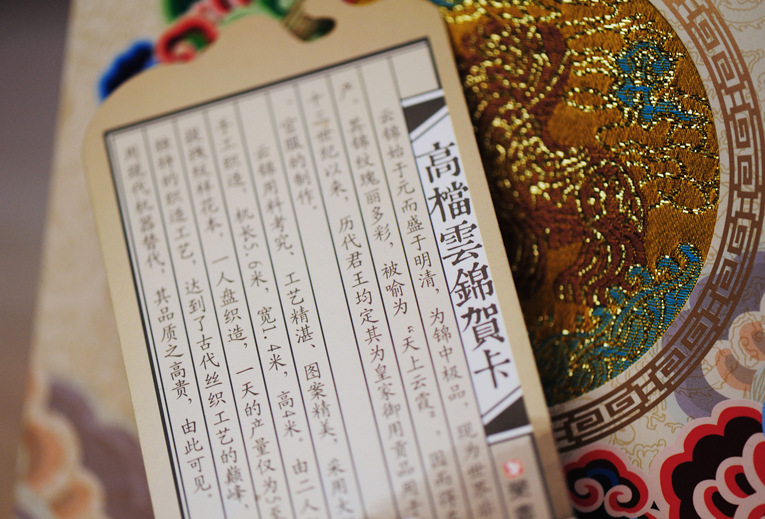 高檔雲錦賀卡
云锦始于元而盛于明清，为锦中极品，现为世界
产，其锦纹瑰丽多彩，被喻为“天上云霞”，因而
十三世纪以来，历代君王均定其为皇家御用贡品用于
、宫服的制作。
云锦用料考究、工艺精湛、图案精美，采用大
手工织造，机长5.6米，宽1.4米，高4米。由二人
拽纹样花本，一人盘织造，一天的产量仅为5至
独特的织造工艺，达到了古代丝织工艺的巅峰，
用现代机器替代，其品质之高贵，由此可见。